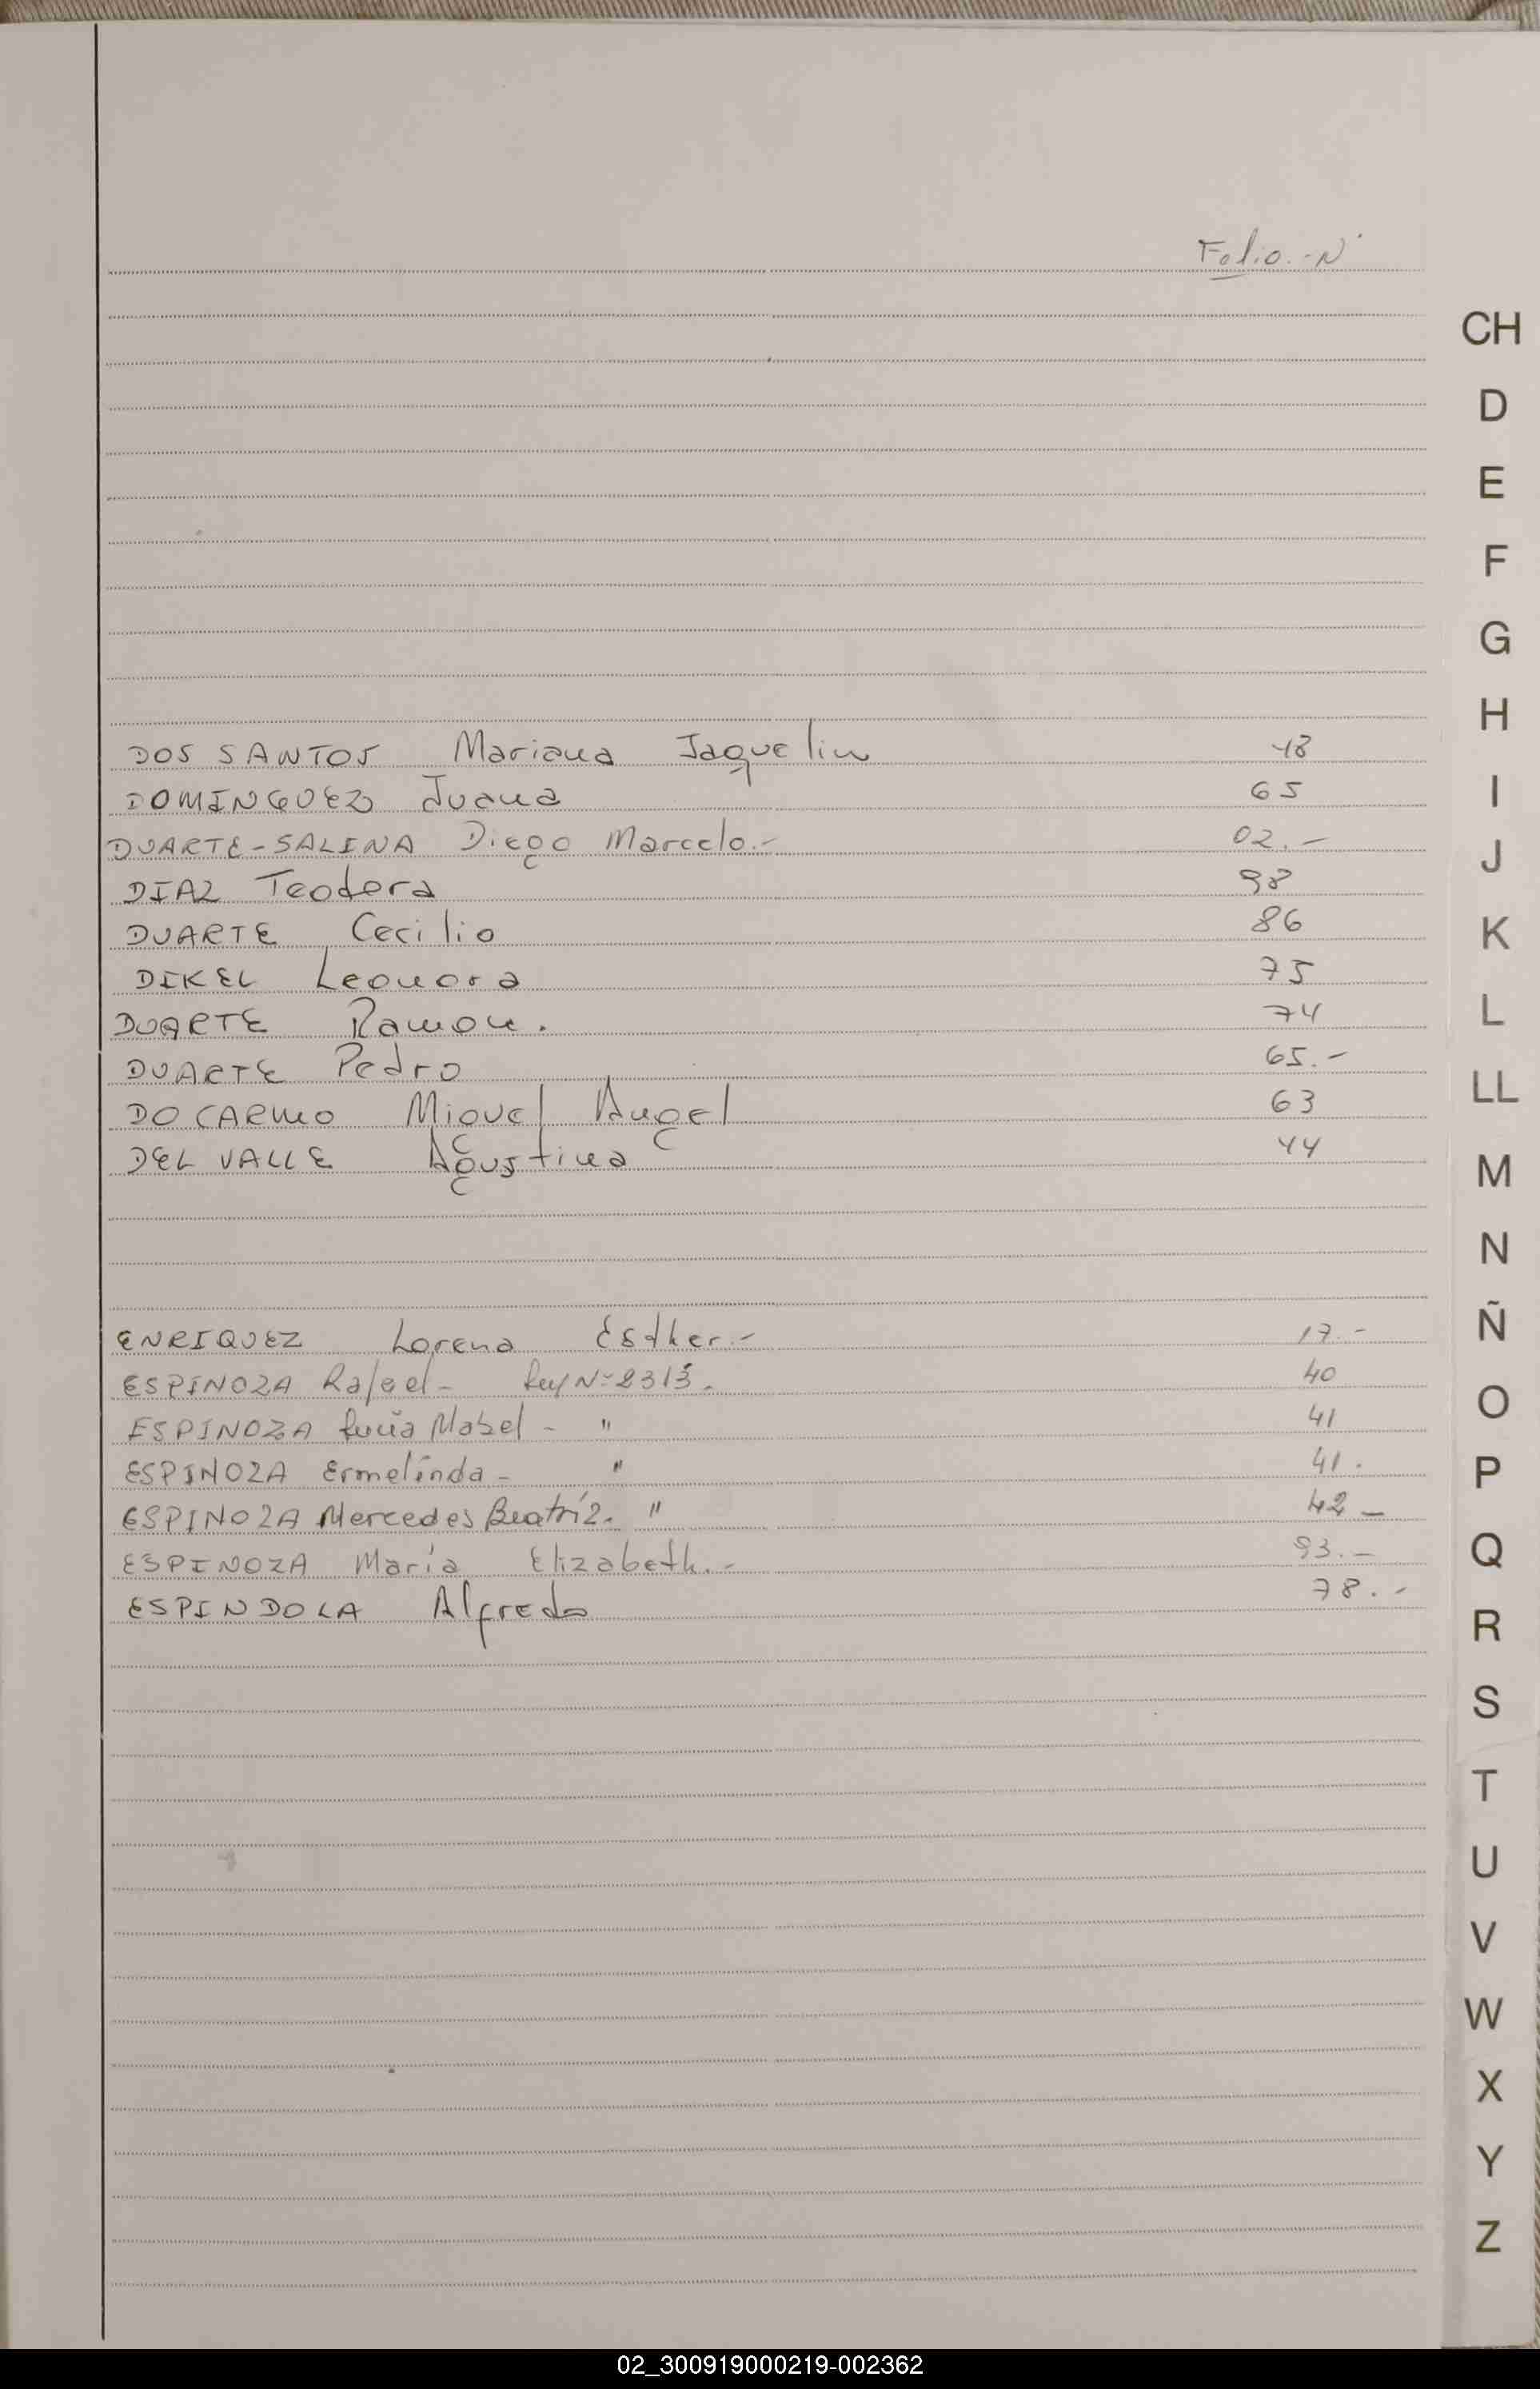 Folio.-N°
DOS SANTOS Mariana Jaquelin 48
DOMINGUEZ Juana 65
DUARTE-SALINA Diego Marcelo.- 02.-
DIAZ Teodora 98
DUARTE Cecilio 86
DIKEL Leonora 75
DUARTE Ramon. 74
DUARTE Pedro 65.-
DO CARMO Miguel Angel 63
DEL VALLE Agustina 44
ENRIQUEZ Lorena Esther.- 17.-
ESPINOZA Rafael- Ley N= 2313. 40
ESPINOZA Lucía Mabel - " 41
ESPINOZA Ermelinda - " 41.
ESPINOZA Mercedes Beatríz. " 42-
ESPINOZA María Elizabeth.- 93.-
ESPINDOLA Alfredo 78.-
CH
D
E
F
G
H
I
J
K
L
LL
M
N
Ñ
O
P
Q
R
S
T
U
V
W
X
Y
Z
02_300919000219-002362